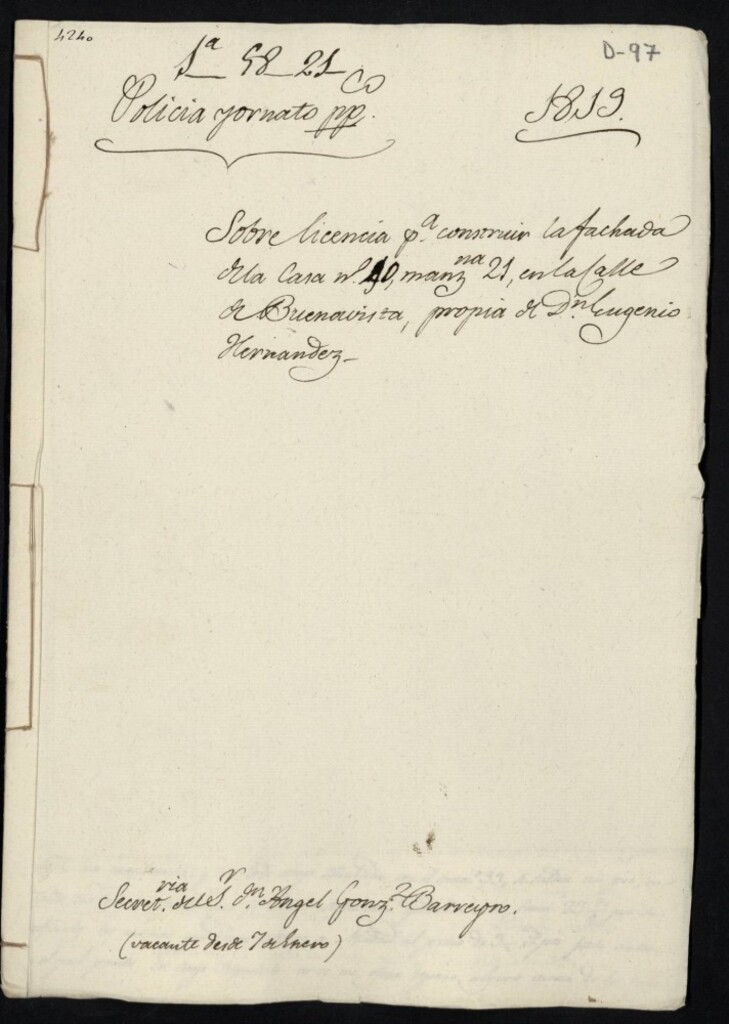 4240
D-97
1ª 58 21
Policia yornato ppco.
1819.
Sobre licencia pª. construir la fachada
dela Casa nº. 10, manzna 21, en la Calle
de Buenavista, propia de Dn. Eugenio
Hernandez_
Secretvia. del Sr. Dn. Angel Gonzz. Barreyro.
(vacante desde 7 de Enero)